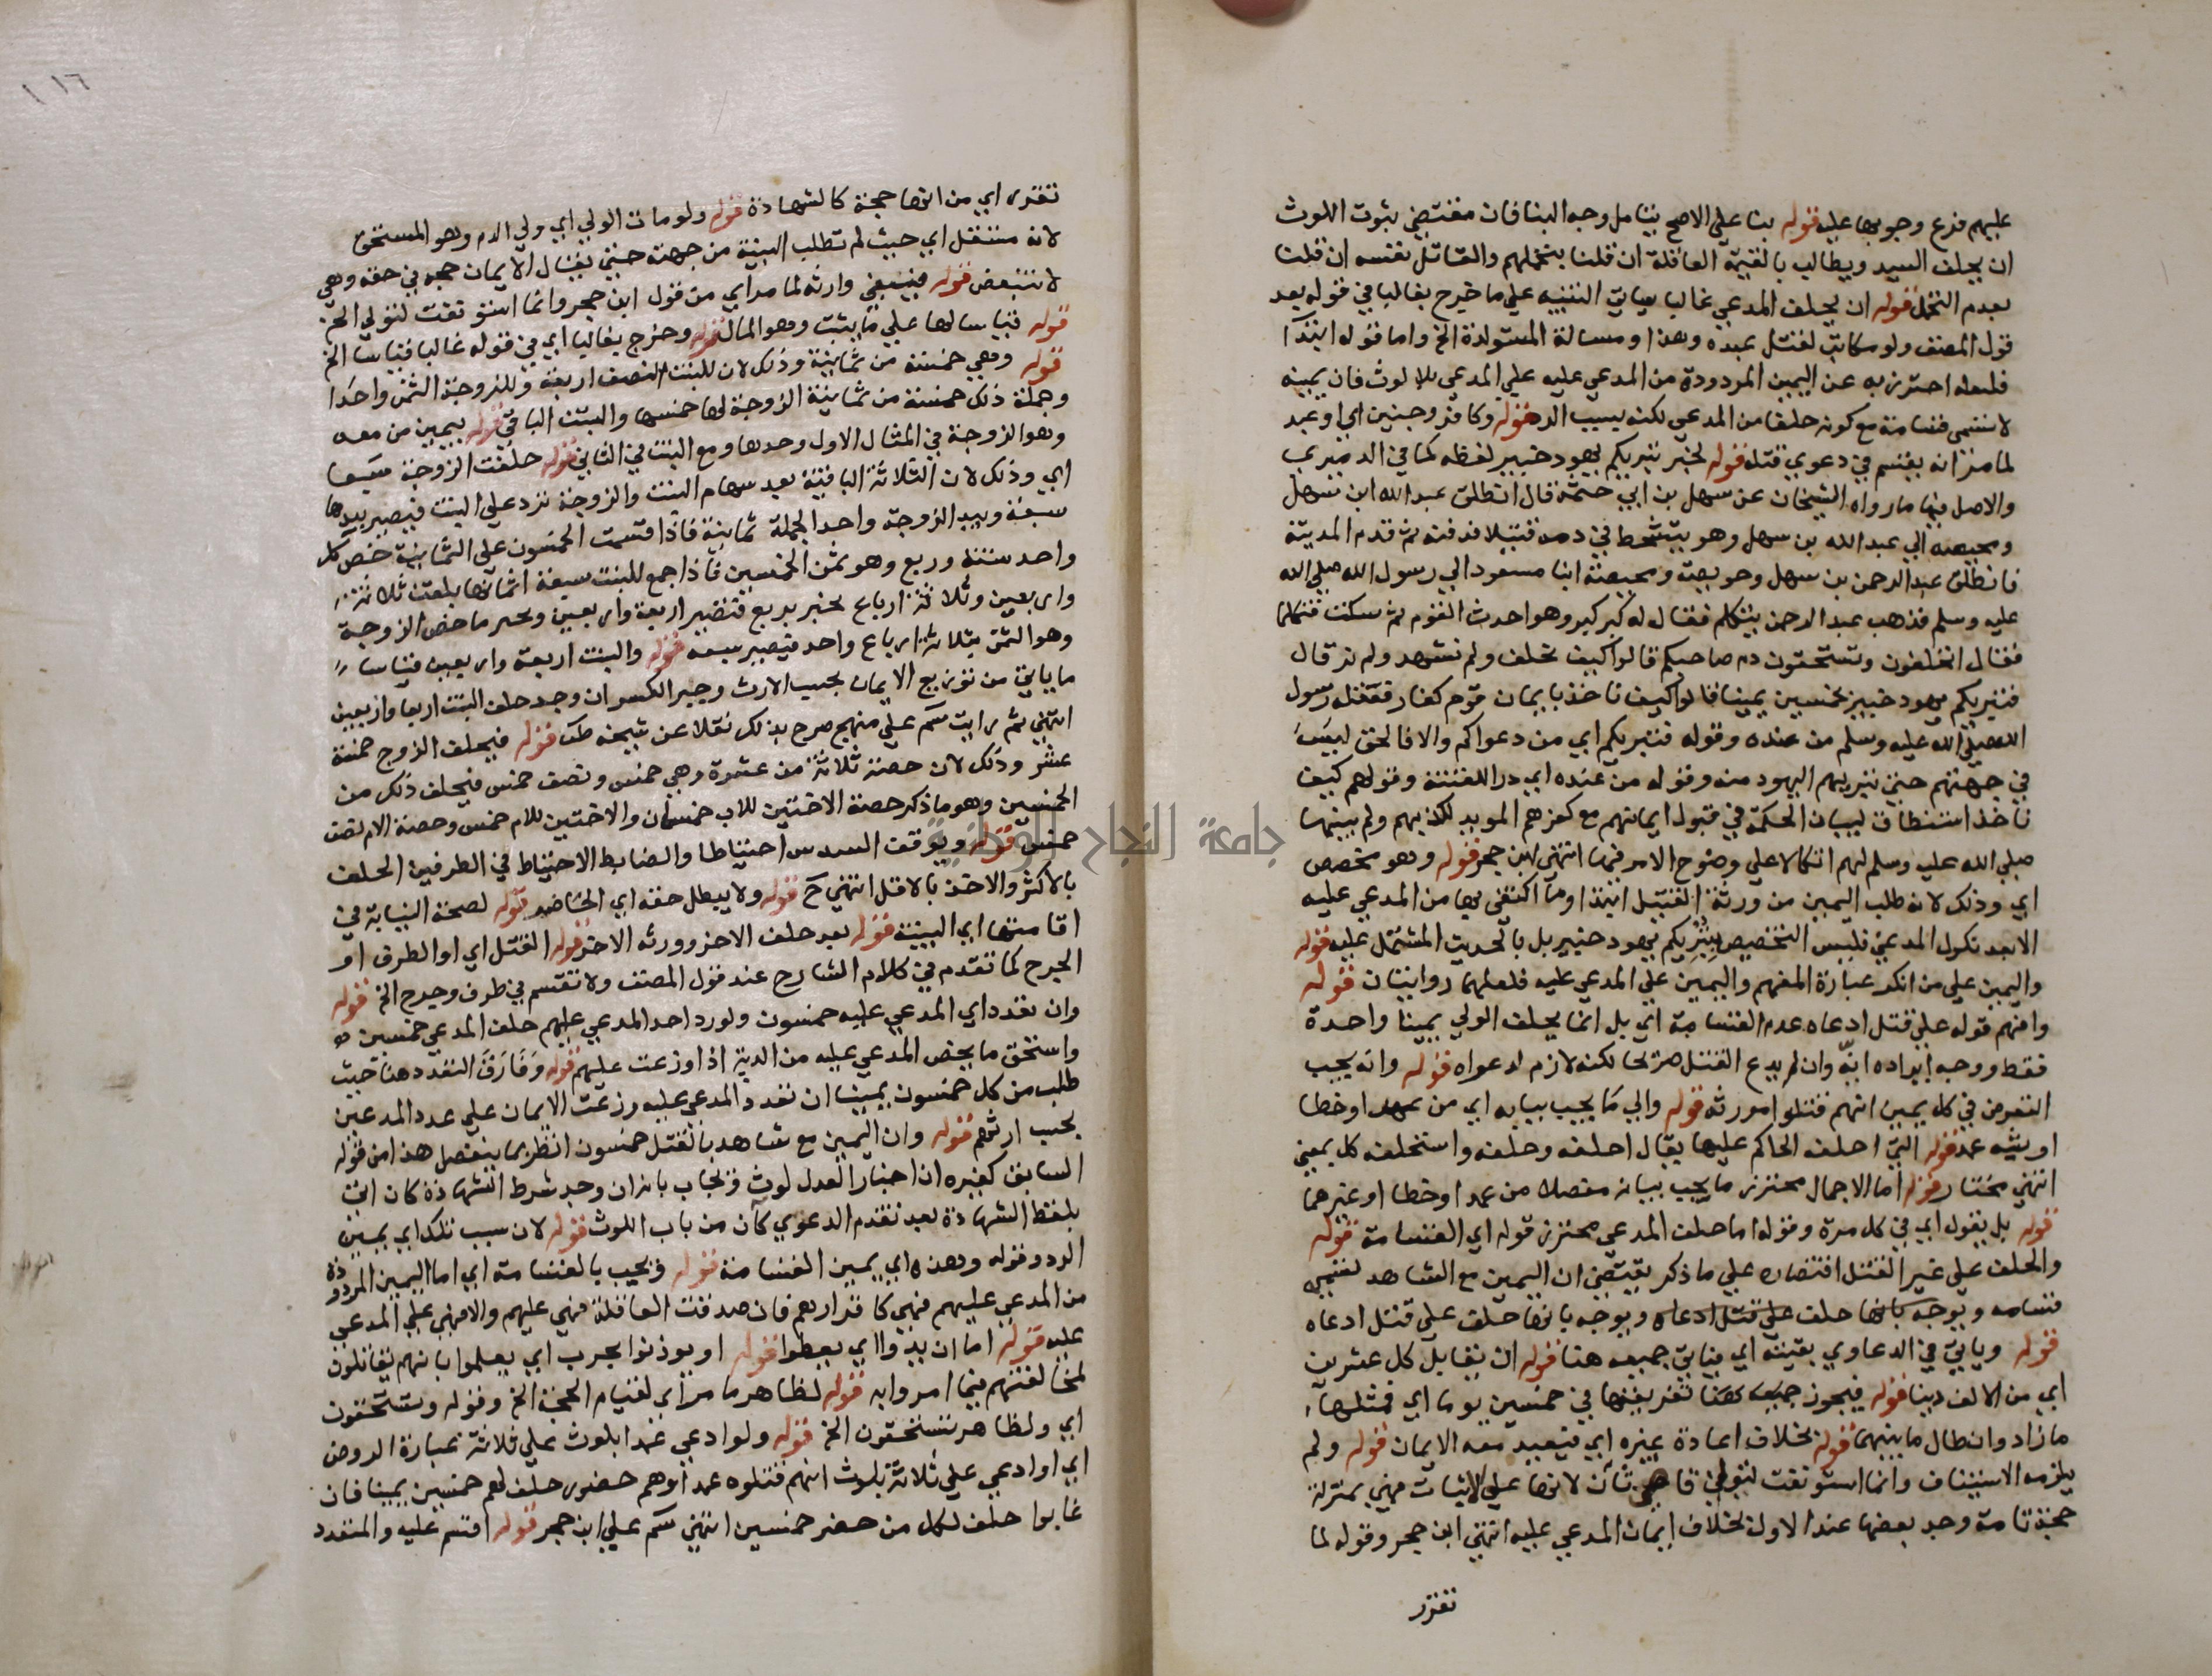 عليهم فرع وجوبها عليه قوله بنا على الاصح بتامل وجه البنا فان مقتضي ثبوت اللوث
ان يحلف السيد ويطالب بالقيمة العاقلة ان قلنا بتحملهم والقاتل نفسه ان قلنا
بعدم التحمل قوله ان يحلف المدعي غالبا سياتي التنبيه على ما خرج بغالبا في قوله بعد
قول المصنف ولو مكاتب لقتل عبده وهذا ومسالة المستولدة الخ واما قوله ابتدا
فلعله احترز به عن اليمين المردودة من المدعي عليه على المدعي بلا لوث فان يمينه
لا تسمى قسامة مع كونه حلفا من المدعي لكنه بسبب الرد قوله وكافر وجنين اي او عبد
لما مر انه يقسم في دعوي قتله قوله لخبر تبريكم يهود خيبر لفظه كما في الدميري
والاصل فيها ما رواه الشيخان عن سهل بن ابي حثمة قال انطلق عبد الله ابن سهل
ومحيصة الي عبد الله بن سهل وهو يتشحط في دمه قتيلا فدفنه ثم قدم المدينة
فانطلق عبد الرحمن بن سهل وحويصة ومحيصة ابنا مسعود الي رسول الله صلى الله
عليه وسلم فذهب عبد الرحمن يتكلم فقال له كبر كبر وهو احدث القوم ثم سكت فتكلما
فقال اتحلفون وتستحقون دم صاحبكم قالوا كيف نحلف ولم نشهد ولم نر قال
فتبريكم يهود خيبر بخمسين يمينا قالوا كيف ناخذ بايمان قوم كفار فعقله رسول
الله صلى الله عليه وسلم من عنده وقوله فتبريكم اي من دعواكم والا فالحق ليس
في جهتهم حتى تبريهم اليهود منه وقوله من عنده اي درا للفتنة وقولهم كيف
ناخذ استنطاق لبيان الحكمة في قبول ايمانهم مع كفرهم المويد لكذبهم ولم يبينها
صلى الله عليه وسلم لهم اتكالا على وضوح الامر فيها انتهى ابن حجر قوله وهو مخصص
اي وذلك لانه طلب اليمين من ورثة القتيل ابتدا وما اكتفى بها من المدعي عليه
الا بعد نكول المدعي فليس التخصيص بتبريكم يهود خيبر بل بالحديث المشتمل عليه قوله
واليمين على من انكر عبارة المفهم واليمين على المدعي عليه فلعلهما روايتان قوله
وافهم قوله على قتل ادعاه عدم القسامة اي بل انما يحلف الولي يمينا واحدة
فقط ووجه ايراده انه وان لم يدع القتل صريحا لكنه لازم لدعواه قوله وانه يجب
التعرض في كل يمين انهم قتلوا مورثه قوله والي ما يجب بيانه اي من عمد او خطا
او شبه عمد قوله التي احلفه الحاكم عليها يقال احلفه وحلفه واستحلفه كل بمعنى
انتهي مختار قوله اما الاجمال محترز ما يجب بيانه مفصلا من عمد او خطا او غيرهما
قوله بل يقول اي في كل مرة وقوله اما حلف المدعي محترز قوله اي القسامة قوله
والحلف على غير القتل اقتصاره على ما ذكر يقتضي ان اليمين مع الشاهد تسمى
قسامه ويوجه بانها حلف على قتل ادعاه ويوجه بانها حلف على قتل ادعاه
قوله وياتي في الدعاوي بقيته اي فياتي جميعه هنا قوله ان يقابل كل عشرين
اي من الالف دينا قوله فيجوز جميعه هنا تفريقها في خمسين يوما اي فمثلها
ما زاد وان طال ما بينهما قوله بخلاف اعادة غيره اي فيعيد معه الايمان قوله ولم
يلزمه الاستيناف وانما استوفقت لتولي قاض ثان لانها على الاثبات فهي بمنزلة
حجة تامة وجد بعضها عند الاول بخلاف ايمان المدعي عليه انتهي ابن حجر وقوله لما
تقرر
١١٦
تقرر اي من انها حجة كالشهادة قوله ولو مات الولي اي ولي الدم وهو المستحق
لانه مستقل اي حيث لم تطلب البينة من جهته حتى يقال الايمان حجة في حقه وهي
لا تتبعض قوله فيستفي وارثه لما مر اي من قول ابن حجر وانما استوفقت لتولي الخ
قوله قياسا لها على ما يثبت وهو المال قوله وخرج بغالبا اي في قوله غالبا قياسا الخ
قوله وهي خمسة من ثمانية وذلك لان للبنت النصف اربعة وللزوجة الثمن واحدا
وجملة ذلك خمسة من ثمانية الزوجة لها خمسها والبنت الباقي قوله بيمين من معه
وهو الزوجة في المثال الاول وحدها ومع البنت في الثاني قوله حلفت الزوجة سبعا
اي وذلك لان الثلاثة الباقية بعد سهام البنت والزوجة ترد على البنت فيصير بيدها
سبعة وبيد الزوجة واحد الجملة ثمانية فاذا قسمت الخمسون على الثمانية خص كل
واحد ستة وربع وهو ثمن الخمسين فاذا جمع للبنت سبعة اثمانها بلغت ثلاثة
واربعين وثلاثة ارباع يجبر بربع فتصير اربعة واربعين ويجبر ما خص الزوجة
وهو الثمن بثلاثة ارباع واحد فيصير سبعه قوله والبنت اربعة واربعين قياسا
ما ياتي من توزيع الايمان بحسب الارث وجبر الكسر ان وجد حلف البنت اربعا واربعين
انتهي ثم رايت سم على منهج صرح بذلك نقلا عن شيخه طب قوله فيحلف الزوج خمسة
عشر وذلك لان حصته ثلاثة من عشرة وهي خمس ونصف خمس فيحلف ذلك من
الخمسين وهو ما ذكر حصة الاختين للاب خمسان والاختين للام خمس وحصة الام نصف
خمس قوله ويوقف السدس احتياطا والضابط الاحتياط في الطرفين الحلف
بالاكثر والاخذ بالاقل انتهي حج قوله ولا يبطل حقه اي الحاضر قوله لصحة النيابة في
اقامتها اي البينة قوله بعد حلف الاخر وورثه الاخر قوله القتل اي او الطرف او
الجرح كما تقدم في كلام الشارح عند قول المصنف ولا تقسم في طرف وجرح الخ قوله
وان تعدد اي المدعي عليه خمسون ولو رد احد المدعي عليهم حلف المدعي خمسين
واستحق ما يخص المدعي عليه من الدية اذا وزعت عليهم قوله وفارق التعدد هنا حيث
طلب من كل خمسون يمينا ان تعدد المدعي عليه وزعت الايمان على عدد المدعين
بحسب ارثهم قوله وان اليمين مع شاهد بالقتل خمسون انظر بما ينفصل هذا من قوله
السابق كغيره ان اخبار العدل لوث وقد يجاب بانه ان وجد شرط الشهادة كان اتى
بلفظ الشهادة بعد تقدم الدعوي كان من باب اللوث قوله لان سبب تلك اي يمين
الرد وقوله وهذه اي يمين القسامة قوله ويجب بالقسامة اي اما اليمين المردودة
من المدعي عليهم فهي كاقرارهم فان صدقت العاقلة فهي عليهم والا فهي على المدعي
عليه قوله اما ان يدوا اي يعطوا قوله او يوذنوا بحرب اي يعلموا بانهم يقاتلون
لمخالفتهم فيما امروا به قوله لظاهر ما مر اي لقيام الحجة الخ وقوله وتستحقون
اي ولظاهر تستحقون الخ قوله ولو ادعي عمدا بلوث على ثلاثة عبارة الروض
اي او ادعي على ثلاثة بلوث انهم قتلوه عمدا وهم حضور حلف لهم خمسين يمينا فان
غابوا حلف لكل من حضر خمسين انتهى سم على ابن حجر قوله اقسم عليه والمتعدد
جامعة النجاح الوطنية